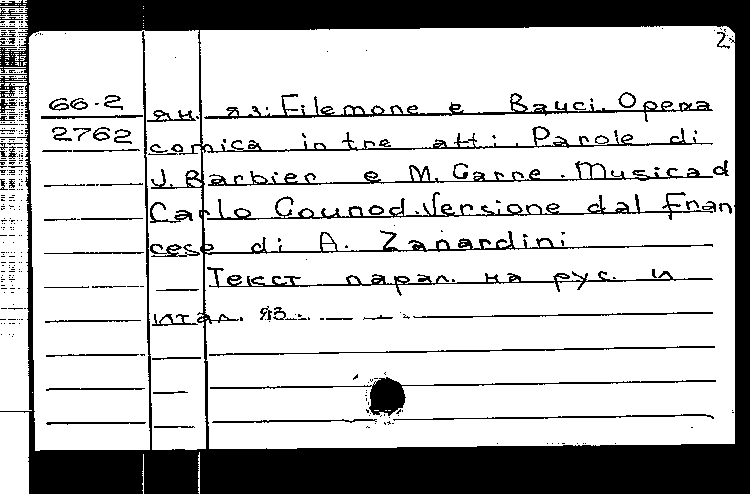 2
66.2
2762
ян. яз: Filemone e Bauci. Opera
comica in tre atti. Parole di
J. Barbier e M. Carre. Musica d
Carlo Gounod. Versione dal fran
cese di A. Zanardini
Текст парал. на рус. и
итал. яз.